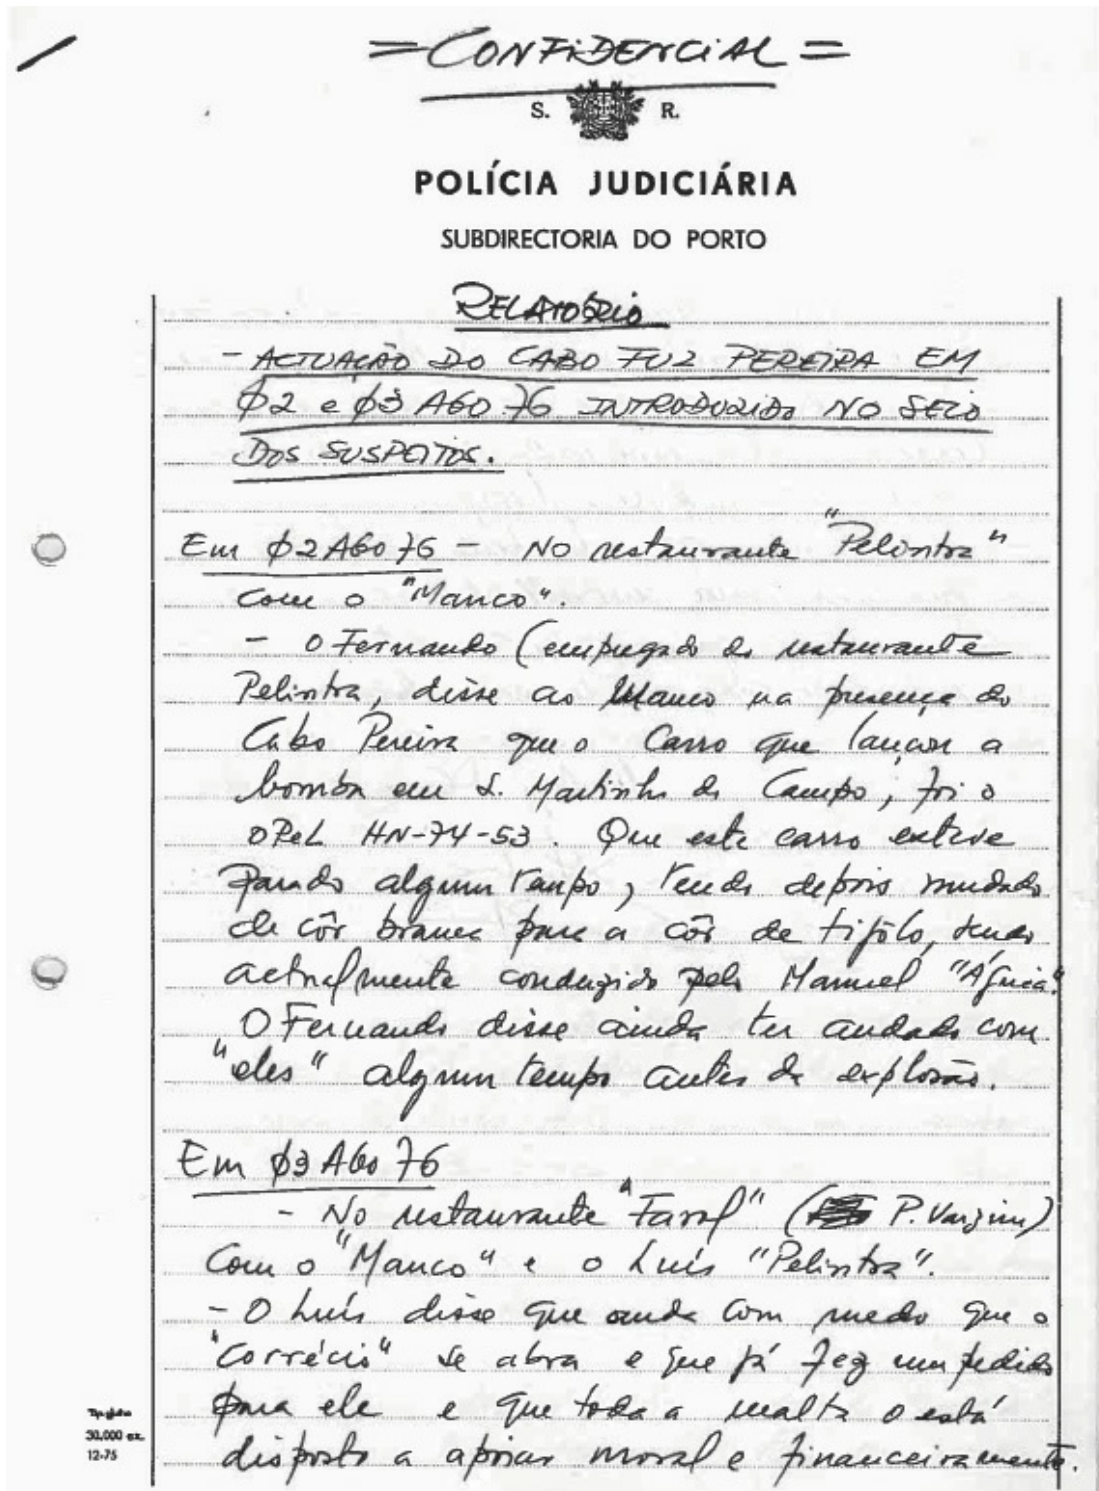 = CONFIDENCIAL =
S. R.
POLÍCIA JUDICIÁRIA
SUBDIRECTORIA DO PORTO
RELATÓRIO
- ACTUAÇÃO DO CABO FUZ PEREIRA EM
02 e 03 AGO 76 INTRODUZIDO NO SEIO
DOS SUSPEITOS.
Em 02 AGO 76 - No restaurante "Pelintra"
com o "Manco".
- O Fernando (empregado do restaurante
Pelintra, disse ao Manco na presença do
Cabo Pereira que o carro que lançou a
bomba em S. Martinho do Campo, foi o
OPEL HN-74-53. Que este carro esteve
parado algum tempo, tendo depois mudado
de côr branca para a côr de tijólo, sendo
actualmente conduzido pelo Manuel "Águia".
O Fernando disse ainda ter andado com
"eles" algum tempo antes da explosão.
Em 03 AGO 76
- No restaurante "Farol" (P. Varzim)
Com o "Manco" e o Luís "Pelintra".
- O Luís disse que anda com medo que o
"Corrécio" se abra e que já fez um pedido
para ele e que toda a malta o está
disposta a apoiar moral e financeiramente.
30.000 ex.
12-75